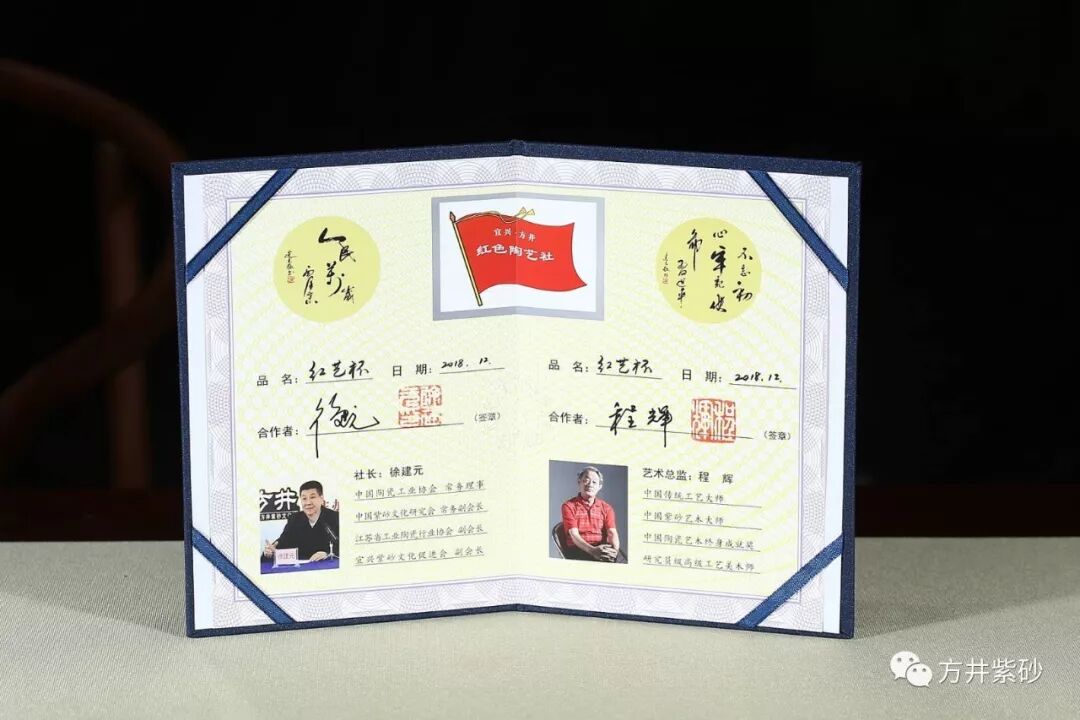 人民万岁
不忘初
心牢记使
命
习近平
宜兴·方井
红色陶艺社
品 名：红艺杯 日 期：2018.12.
合作者： （签章）
社长：徐建元
中国陶瓷工业协会 常务理事
中国紫砂文化研究会 常务副会长
江苏省工业陶瓷行业协会 副会长
宜兴紫砂文化促进会 副会长
方井
方井紫砂文
徐建元
品 名：红艺杯 日 期：2018.12.
合作者：程辉 （签章）
艺术总监：程 辉
中国传统工艺大师
中国紫砂艺术大师
中国陶瓷艺术终身成就奖
研究员级高级工艺美术师
方井紫砂